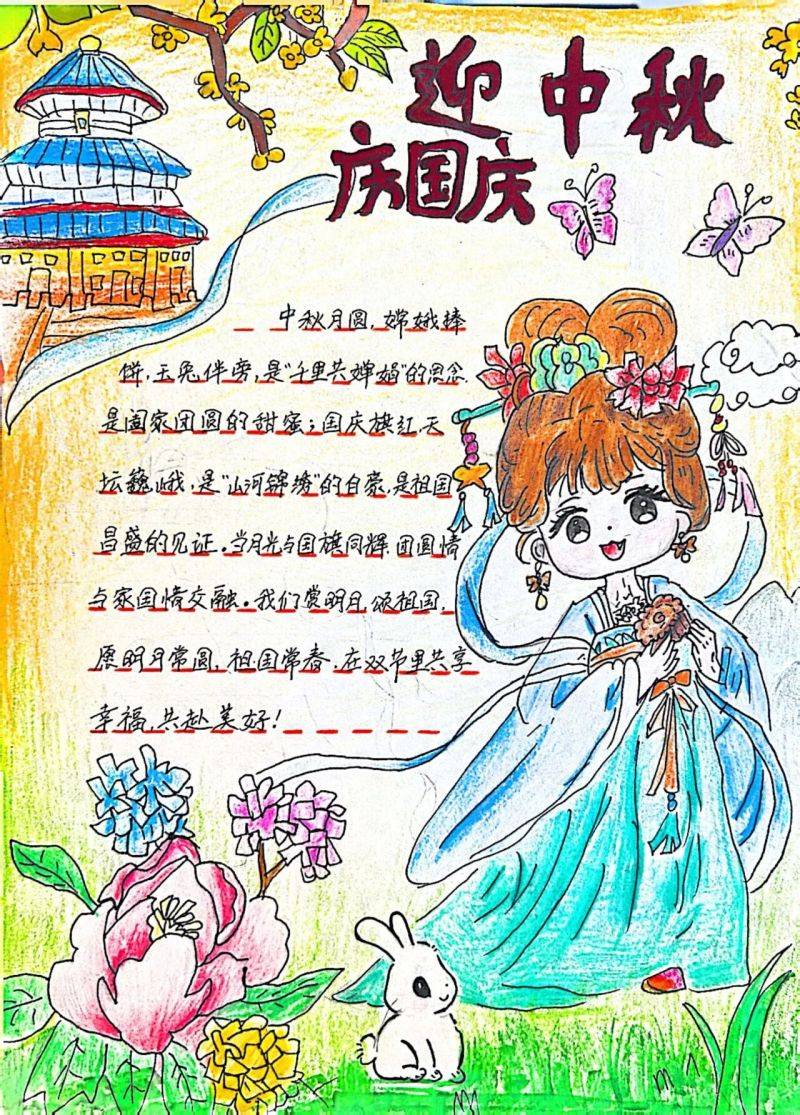 迎中秋
庆国庆
中秋月圆，嫦娥捧
饼，玉兔伴旁，是“千里共婵娟”的思念，
是阖家团圆的甜蜜；国庆旗红，天
坛巍峨，是“山河锦绣”的自豪，是祖国
昌盛的见证。当月光与国旗同辉，团圆情
与家国情交融。我们赏明月，颂祖国，
愿明月常圆，祖国常春，在双节里共享
幸福，共赴美好！